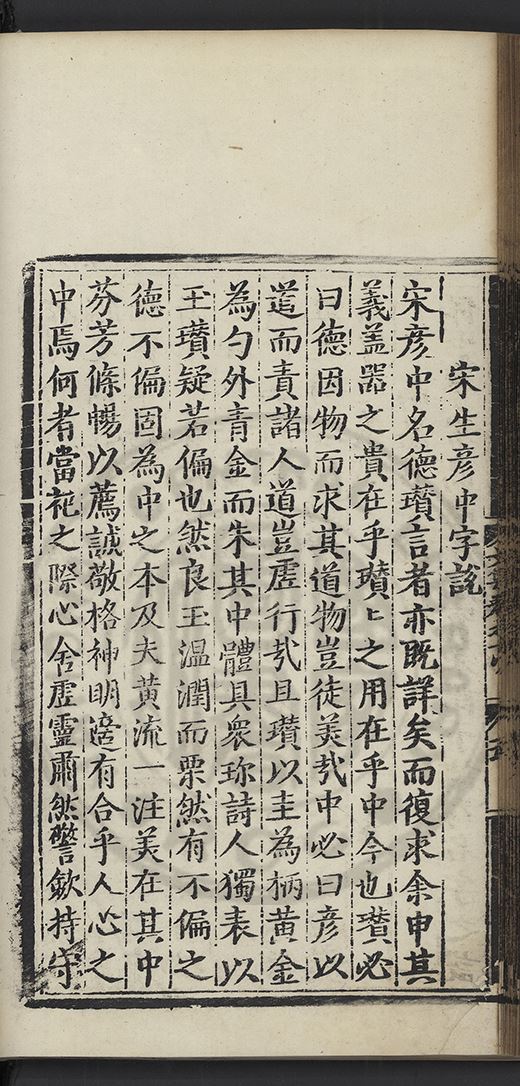 宋生彦中字說
宋彦中名德瓚言者亦既詳矣而復求余申其
義盖器之貴在乎瓚〻之用在乎中今也瓚必
曰德因物而求其道物豈徒美㢤中必曰彦以
道而責諸人道豈虛行㢤且瓚以圭為柄黄金
為勺外青金而朱其中體具衆珎詩人獨表以
玉瓚疑若偏也然良玉温潤而栗然有不偏之
德不偏固為中之本及夫黄流一注美在其中
芬芳條暢以薦誠敬格神明適有合乎人心之
中焉何者當祀之際心舍虛靈肅然警歛持守